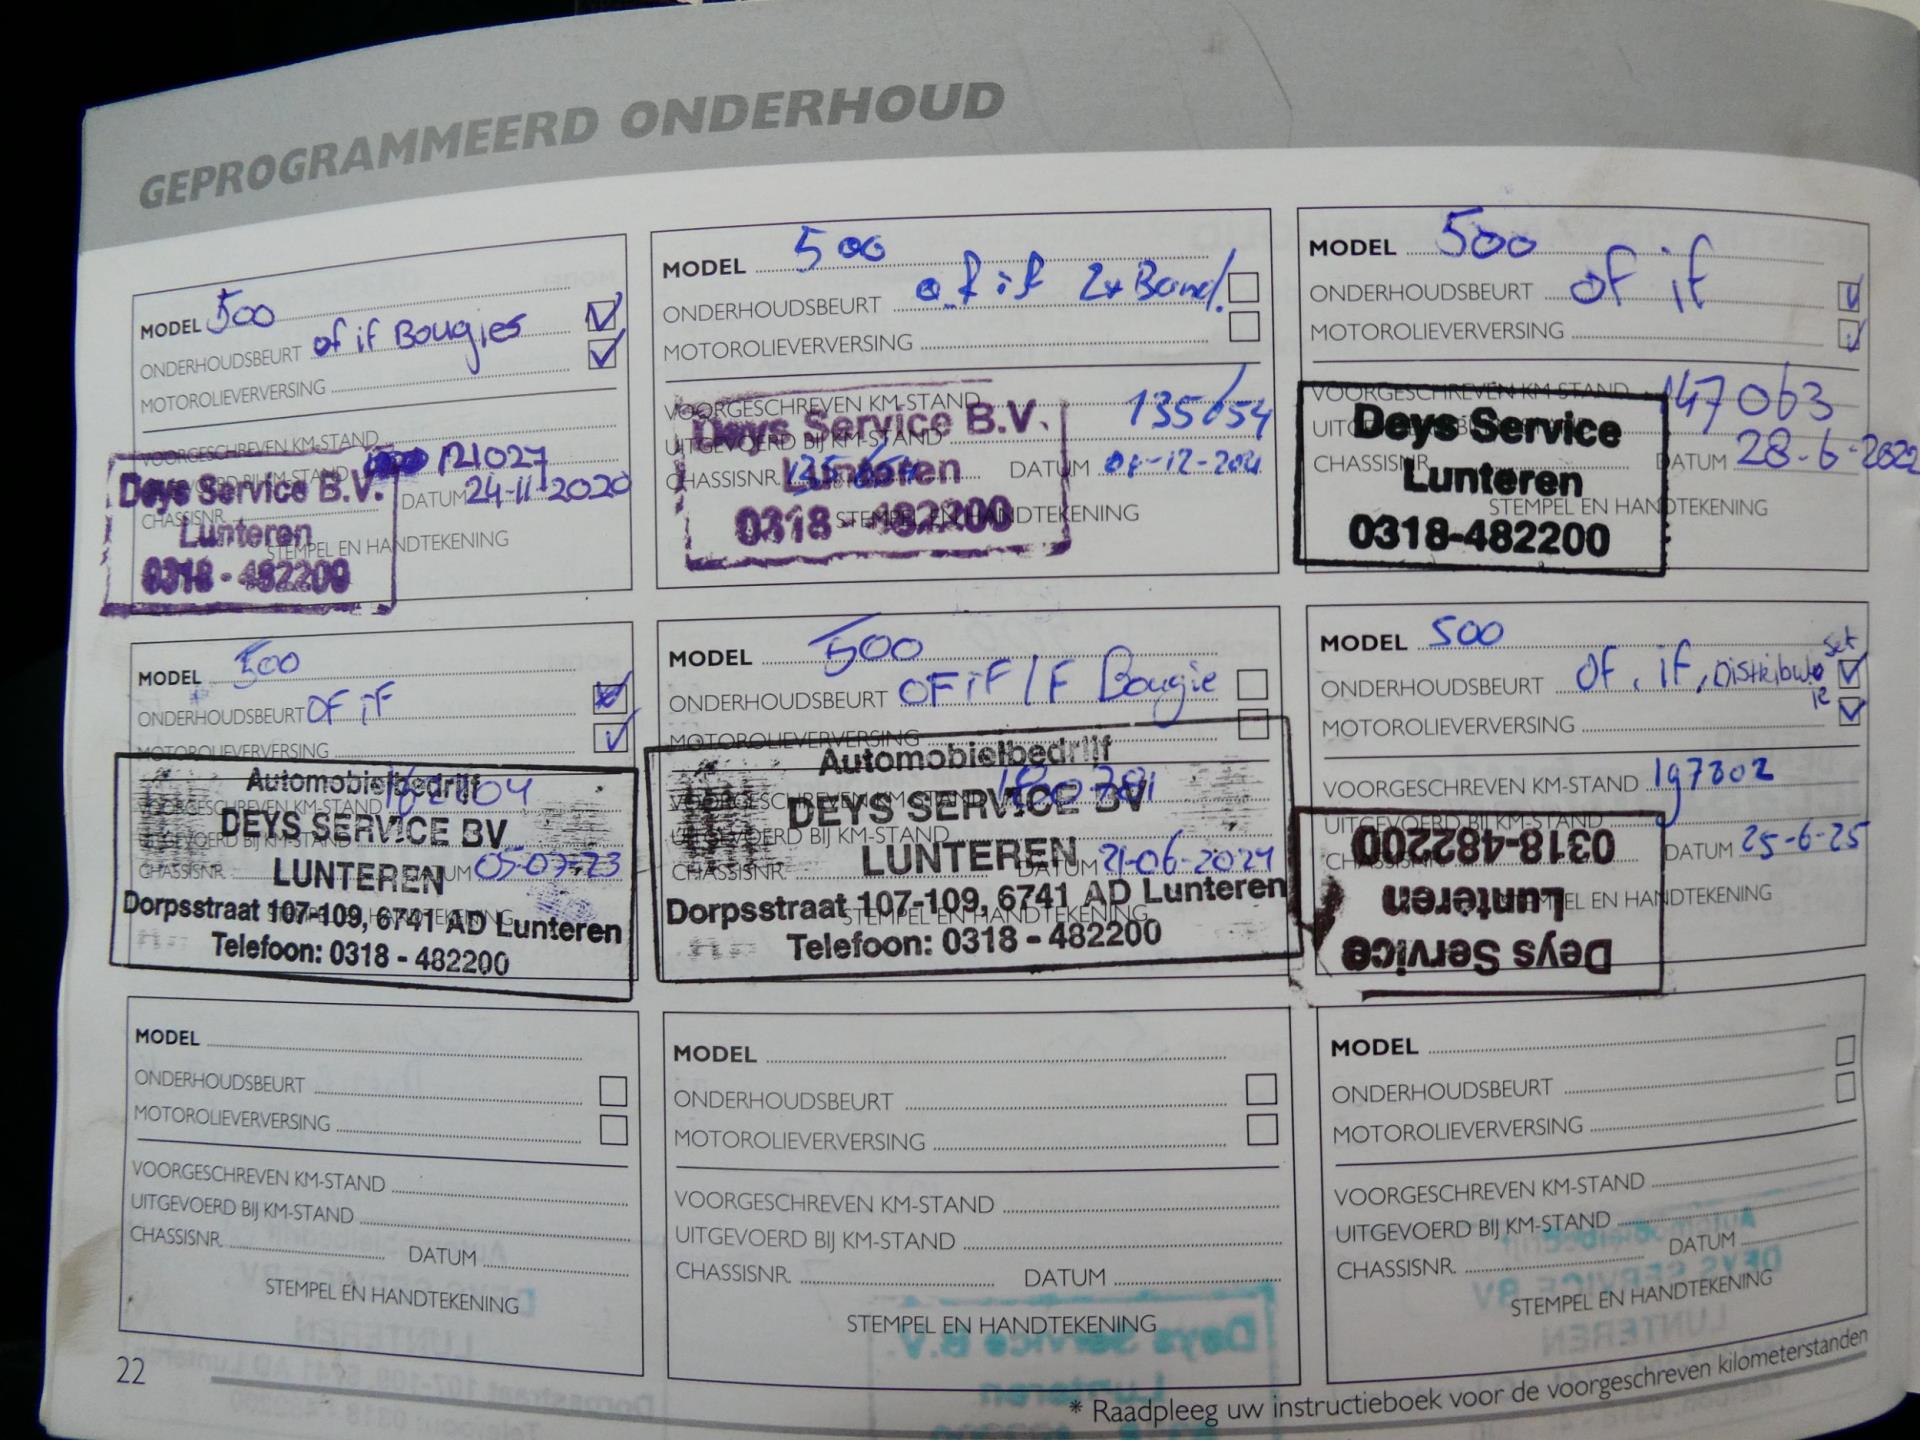 GEPROGRAMMEERD ONDERHOUD
MODEL 500
ONDERHOUDSBEURT of if Bougies
MOTOROLIEVERVERSING
VOORGESCHREVEN KM-STAND
121027
DATUM 24-11-2020
CHASSISNR.
STEMPEL EN HANDTEKENING
Deys Service B.V.
Lunteren
0318 - 482200
MODEL 500
ONDERHOUDSBEURT of if 2x Band!
MOTOROLIEVERVERSING
VOORGESCHREVEN KM-STAND
UITGEVOERD BIJ KM-STAND 135654
CHASSISNR. DATUM
STEMPEL EN HANDTEKENING
Deys Service B.V.
Lunteren
0318 - 482200
MODEL 500
ONDERHOUDSBEURT of if
MOTOROLIEVERVERSING
VOORGESCHREVEN KM-STAND 147063
CHASSISNR. DATUM 28-6-2022
STEMPEL EN HANDTEKENING
Deys Service
Lunteren
0318-482200
MODEL 500
ONDERHOUDSBEURT OF iF
MOTOROLIEVERVERSING
VOORGESCHREVEN KM-STAND
CHASSISNR. DATUM 05-07-23
Automobielbedrijf
DEYS SERVICE BV
LUNTEREN
Dorpsstraat 107-109, 6741 AD Lunteren
Telefoon: 0318 - 482200
MODEL 500
ONDERHOUDSBEURT OF iF LF Bougie
MOTOROLIEVERVERSING
VOORGESCHREVEN KM-STAND 180781
UITGEVOERD BIJ KM-STAND
CHASSISNR. DATUM 21-06-2024
STEMPEL EN HANDTEKENING
Automobielbedrijf
DEYS SERVICE BV
LUNTEREN
Dorpsstraat 107-109, 6741 AD Lunteren
Telefoon: 0318 - 482200
MODEL 500
ONDERHOUDSBEURT of, if, Distributie set
MOTOROLIEVERVERSING
VOORGESCHREVEN KM-STAND 197302
UITGEVOERD BIJ KM-STAND
CHASSISNR. DATUM 25-6-25
STEMPEL EN HANDTEKENING
Deys Service
Lunteren
0318-482200
MODEL
ONDERHOUDSBEURT
MOTOROLIEVERVERSING
VOORGESCHREVEN KM-STAND
UITGEVOERD BIJ KM-STAND
CHASSISNR. DATUM
STEMPEL EN HANDTEKENING
MODEL
ONDERHOUDSBEURT
MOTOROLIEVERVERSING
VOORGESCHREVEN KM-STAND
UITGEVOERD BIJ KM-STAND
CHASSISNR. DATUM
STEMPEL EN HANDTEKENING
MODEL
ONDERHOUDSBEURT
MOTOROLIEVERVERSING
VOORGESCHREVEN KM-STAND
UITGEVOERD BIJ KM-STAND
CHASSISNR. DATUM
STEMPEL EN HANDTEKENING
22
* Raadpleeg uw instructieboek voor de voorgeschreven kilometerstanden